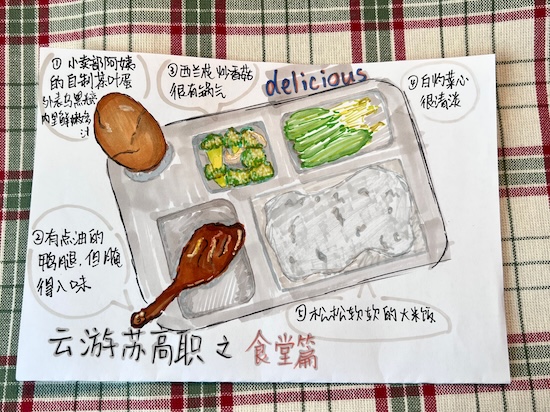 ①小卖部阿姨
的自制茶叶蛋
外表乌黑
内里鲜嫩多
汁
③西兰花炒香菇
很有锅气
delicious
④白灼菜心
很清淡
②有点油的
鸭腿，但腌
得入味
⑤松松软软的大米饭
云游苏高职之食堂篇